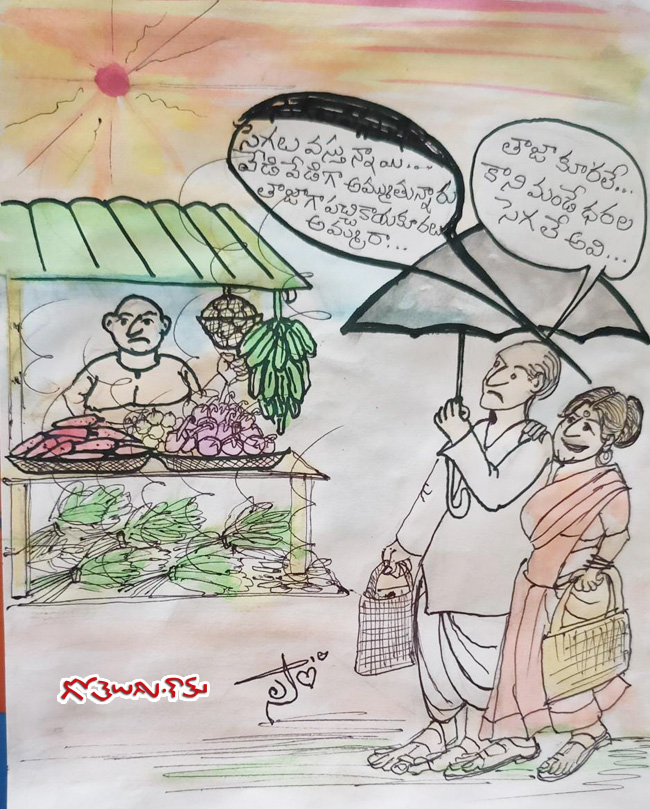 సెగలు వస్తున్నాయి....
వేడివేడిగా అమ్ముతున్నారు
తాజాగా పచ్చికాయకూరలు
అమ్మరా...
తాజా కూరలే...
కాని మండే ధరల
సెగలే అవి...
గోతెలుగు.కామ్